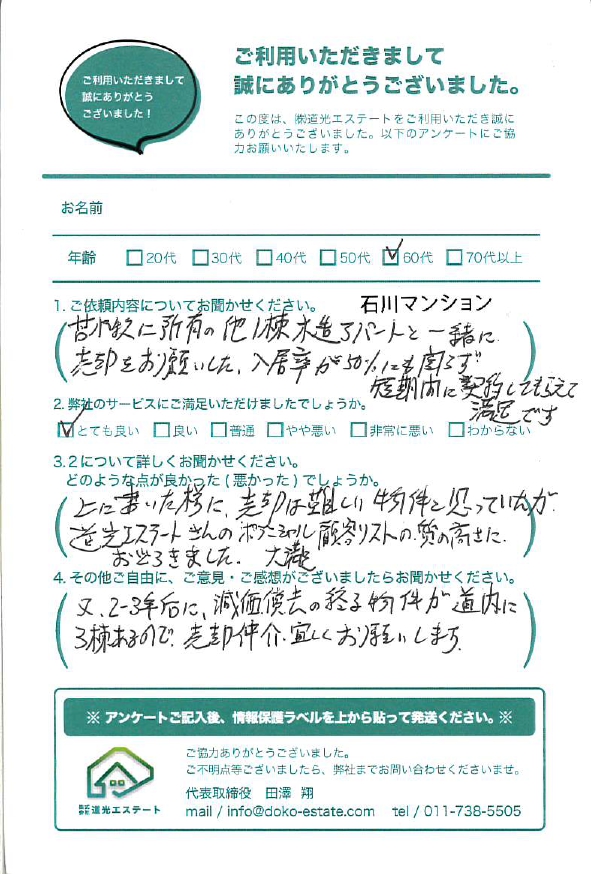 ご利用いただきまして
誠にありがとう
ございました！
ご利用いただきまして
誠にありがとうございました。
この度は、㈱道光エステートをご利用いただき誠に
ありがとうございました。以下のアンケートにご協
力お願いいたします。
お名前
年齢 □20代 □30代 □40代 □50代 ☑60代 □70代以上
1. ご依頼内容についてお聞かせください。 石川マンション
に所有の他1棟木造アパートと一緒に
売却をお願いした、入居率が50%にも関らず
短期内に契約してもらえて
満足です
2. 弊社のサービスにご満足いただけましたでしょうか。
☑とても良い □良い □普通 □やや悪い □非常に悪い □わからない
3. 2について詳しくお聞かせください。
どのような点が良かった(悪かった)でしょうか。
上に書いた様に、売却は難しい物件と思っていたが、
道光エステートさんのポテンシャル顧客リストの質の高さに
おどろきました. 大満足
4. その他ご自由に、ご意見・ご感想がございましたらお聞かせください。
又、2-3年后に、減価償去の終る物件が道内に
3棟あるので、売却仲介宜しくお願いします.
※ アンケートご記入後、情報保護ラベルを上から貼って発送ください。※
株式会社 道光エステート
ご協力ありがとうございました。
ご不明点等ございましたら、弊社までお問い合わせくださいませ。
代表取締役 田澤 翔
mail / info@doko-estate.com tel / 011-738-5505